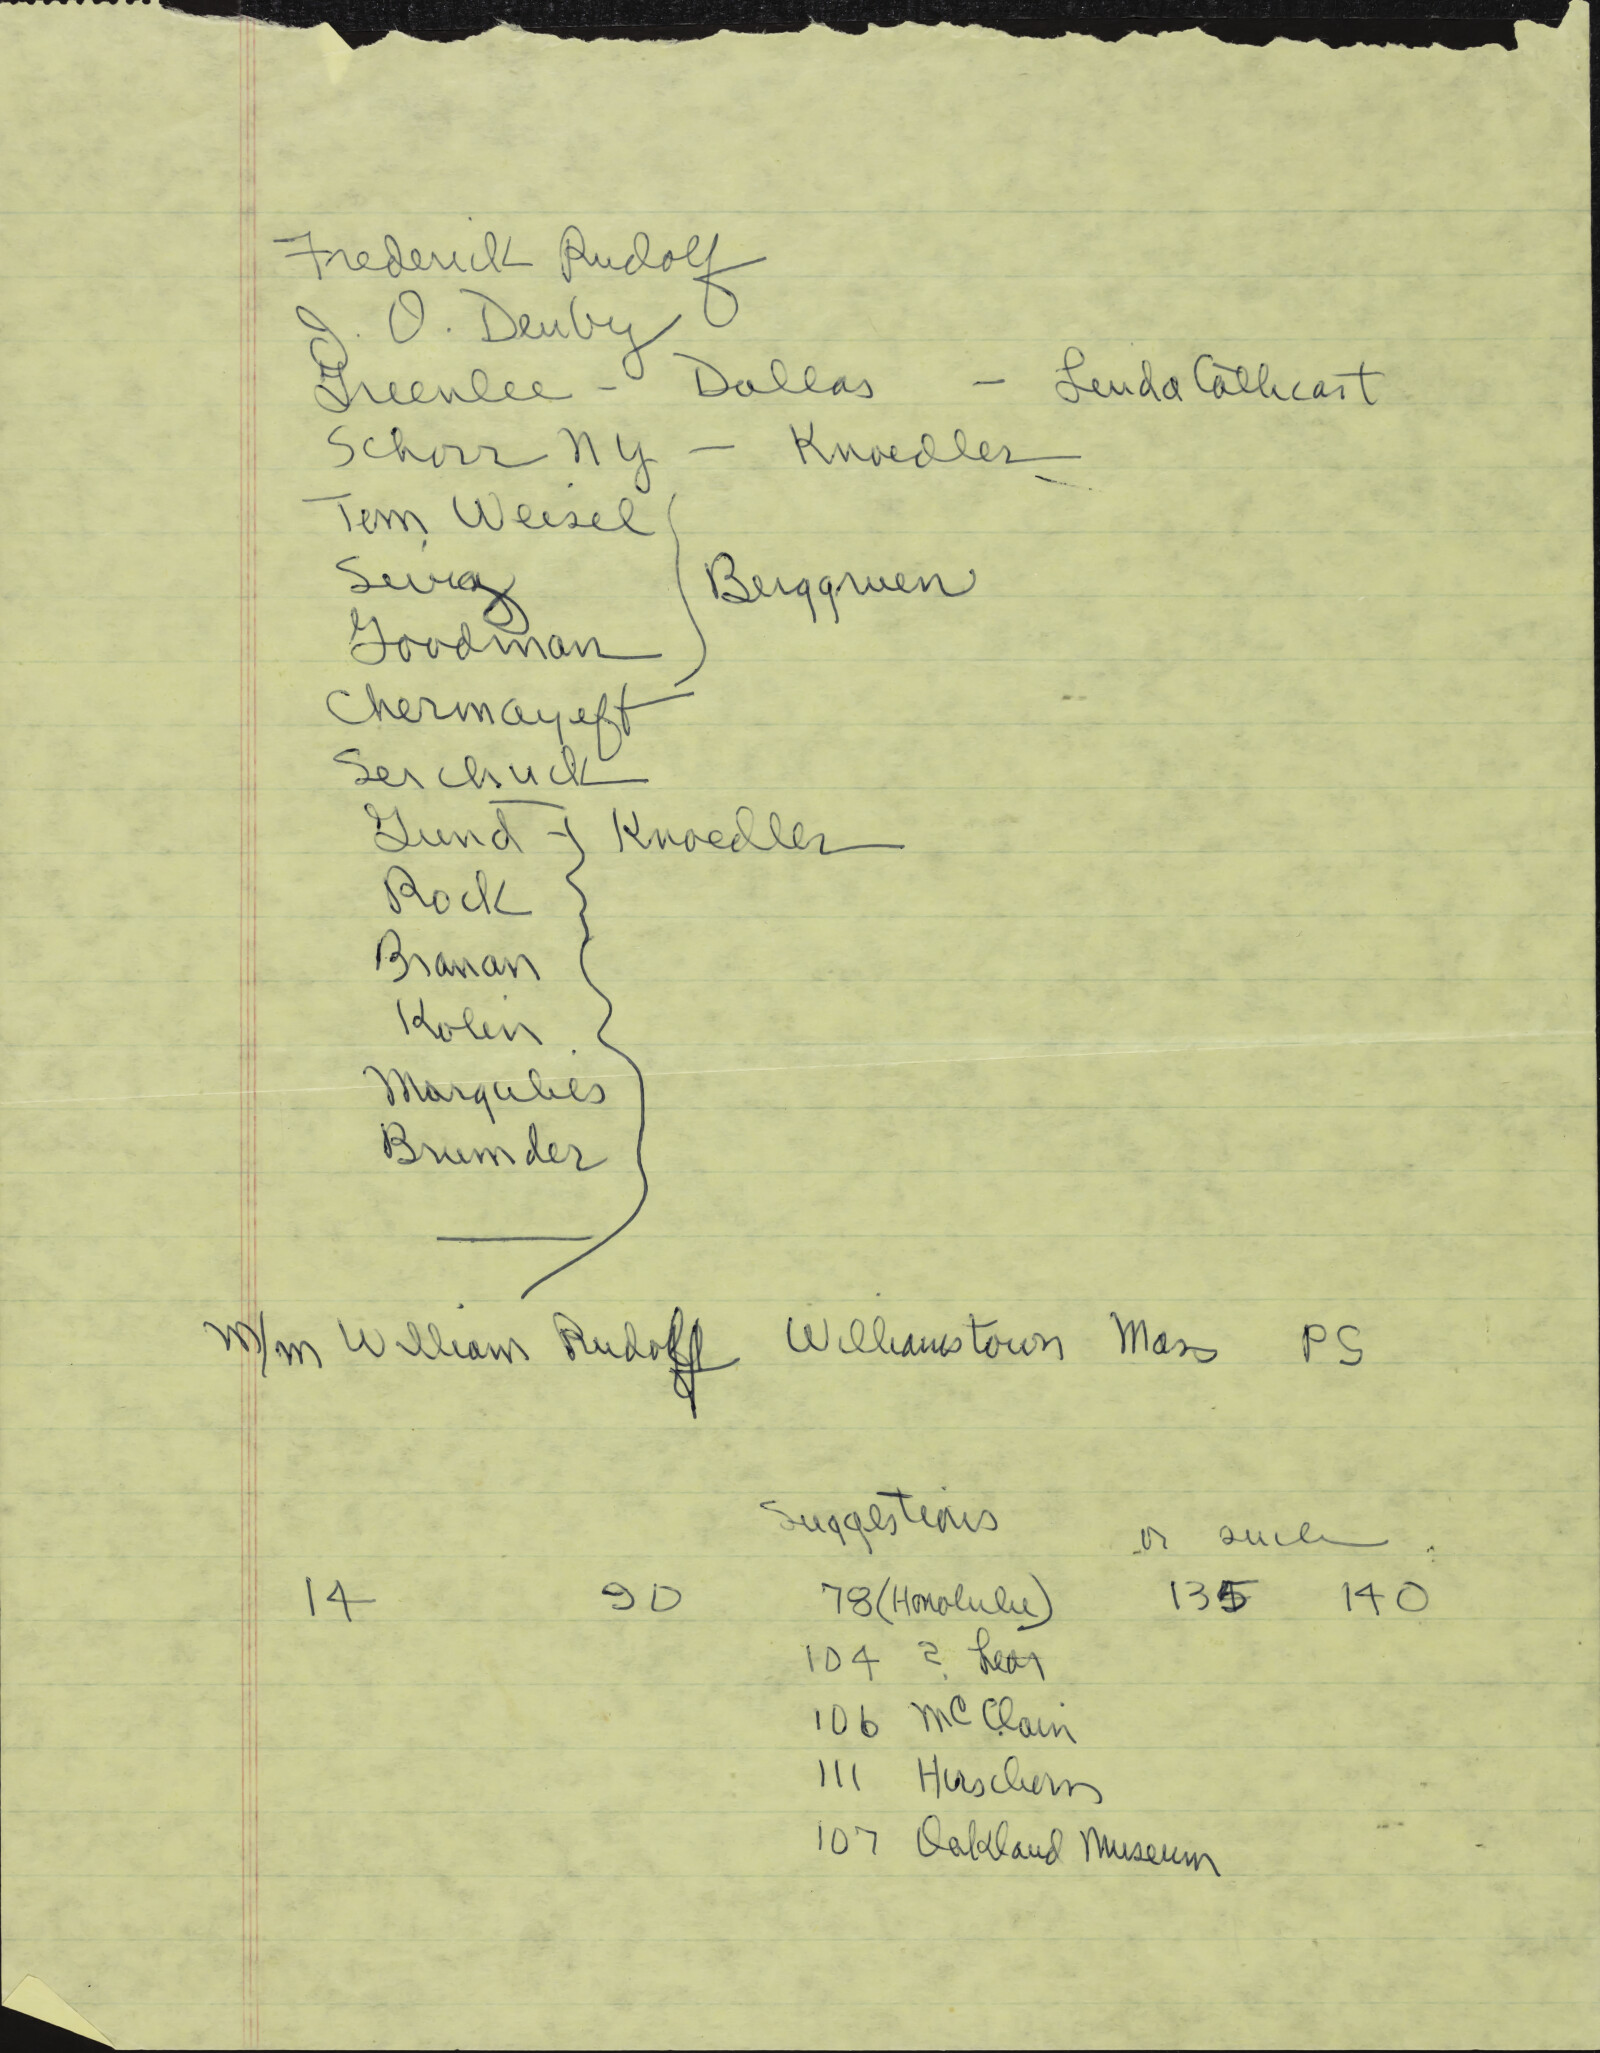 Frederick Rudolf
J. O. Denby
Greenlee - Dallas - Linda Cathcart
Schorr NY - Knoedler
Tom Weisel
Goodman } Berggruen
Chermayeff
Serchuck
Gund - } Knoedler
Rock
Branan
Kolin
Margulies
Brumder
M/M William Rudolf Williamstown Mass PS
Suggestions or such
14 90 78 (Honolulu) 135 140
104 ? Lear
106 McClain
111 Hirschorn
107 Oakland Museum